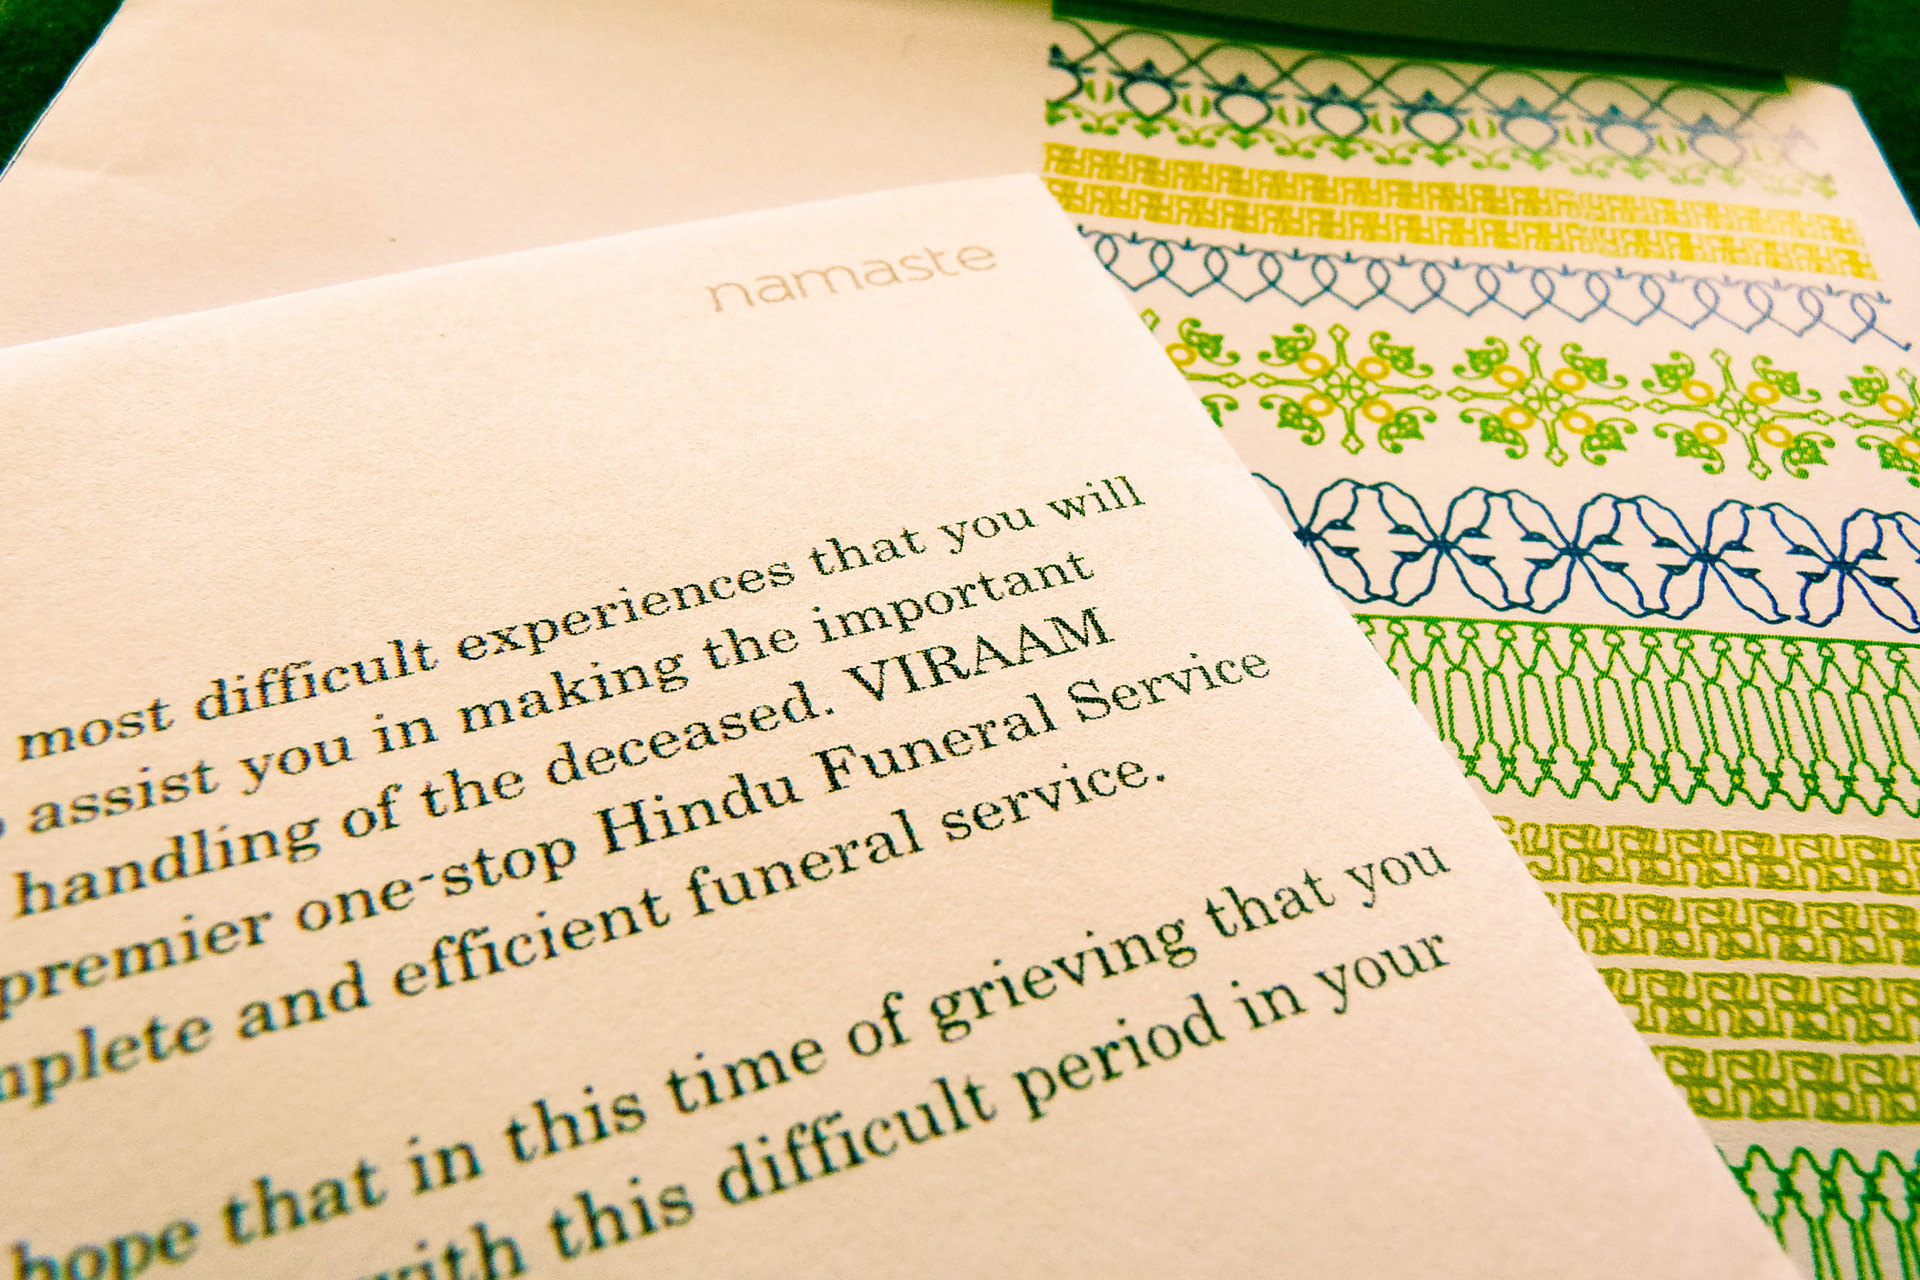 namaste
most difficult experiences that you will
assist you in making the important
handling of the deceased. VIRAAM
premier one-stop Hindu Funeral Service
mplete and efficient funeral service.
hope that in this time of grieving that you
with this difficult period in your